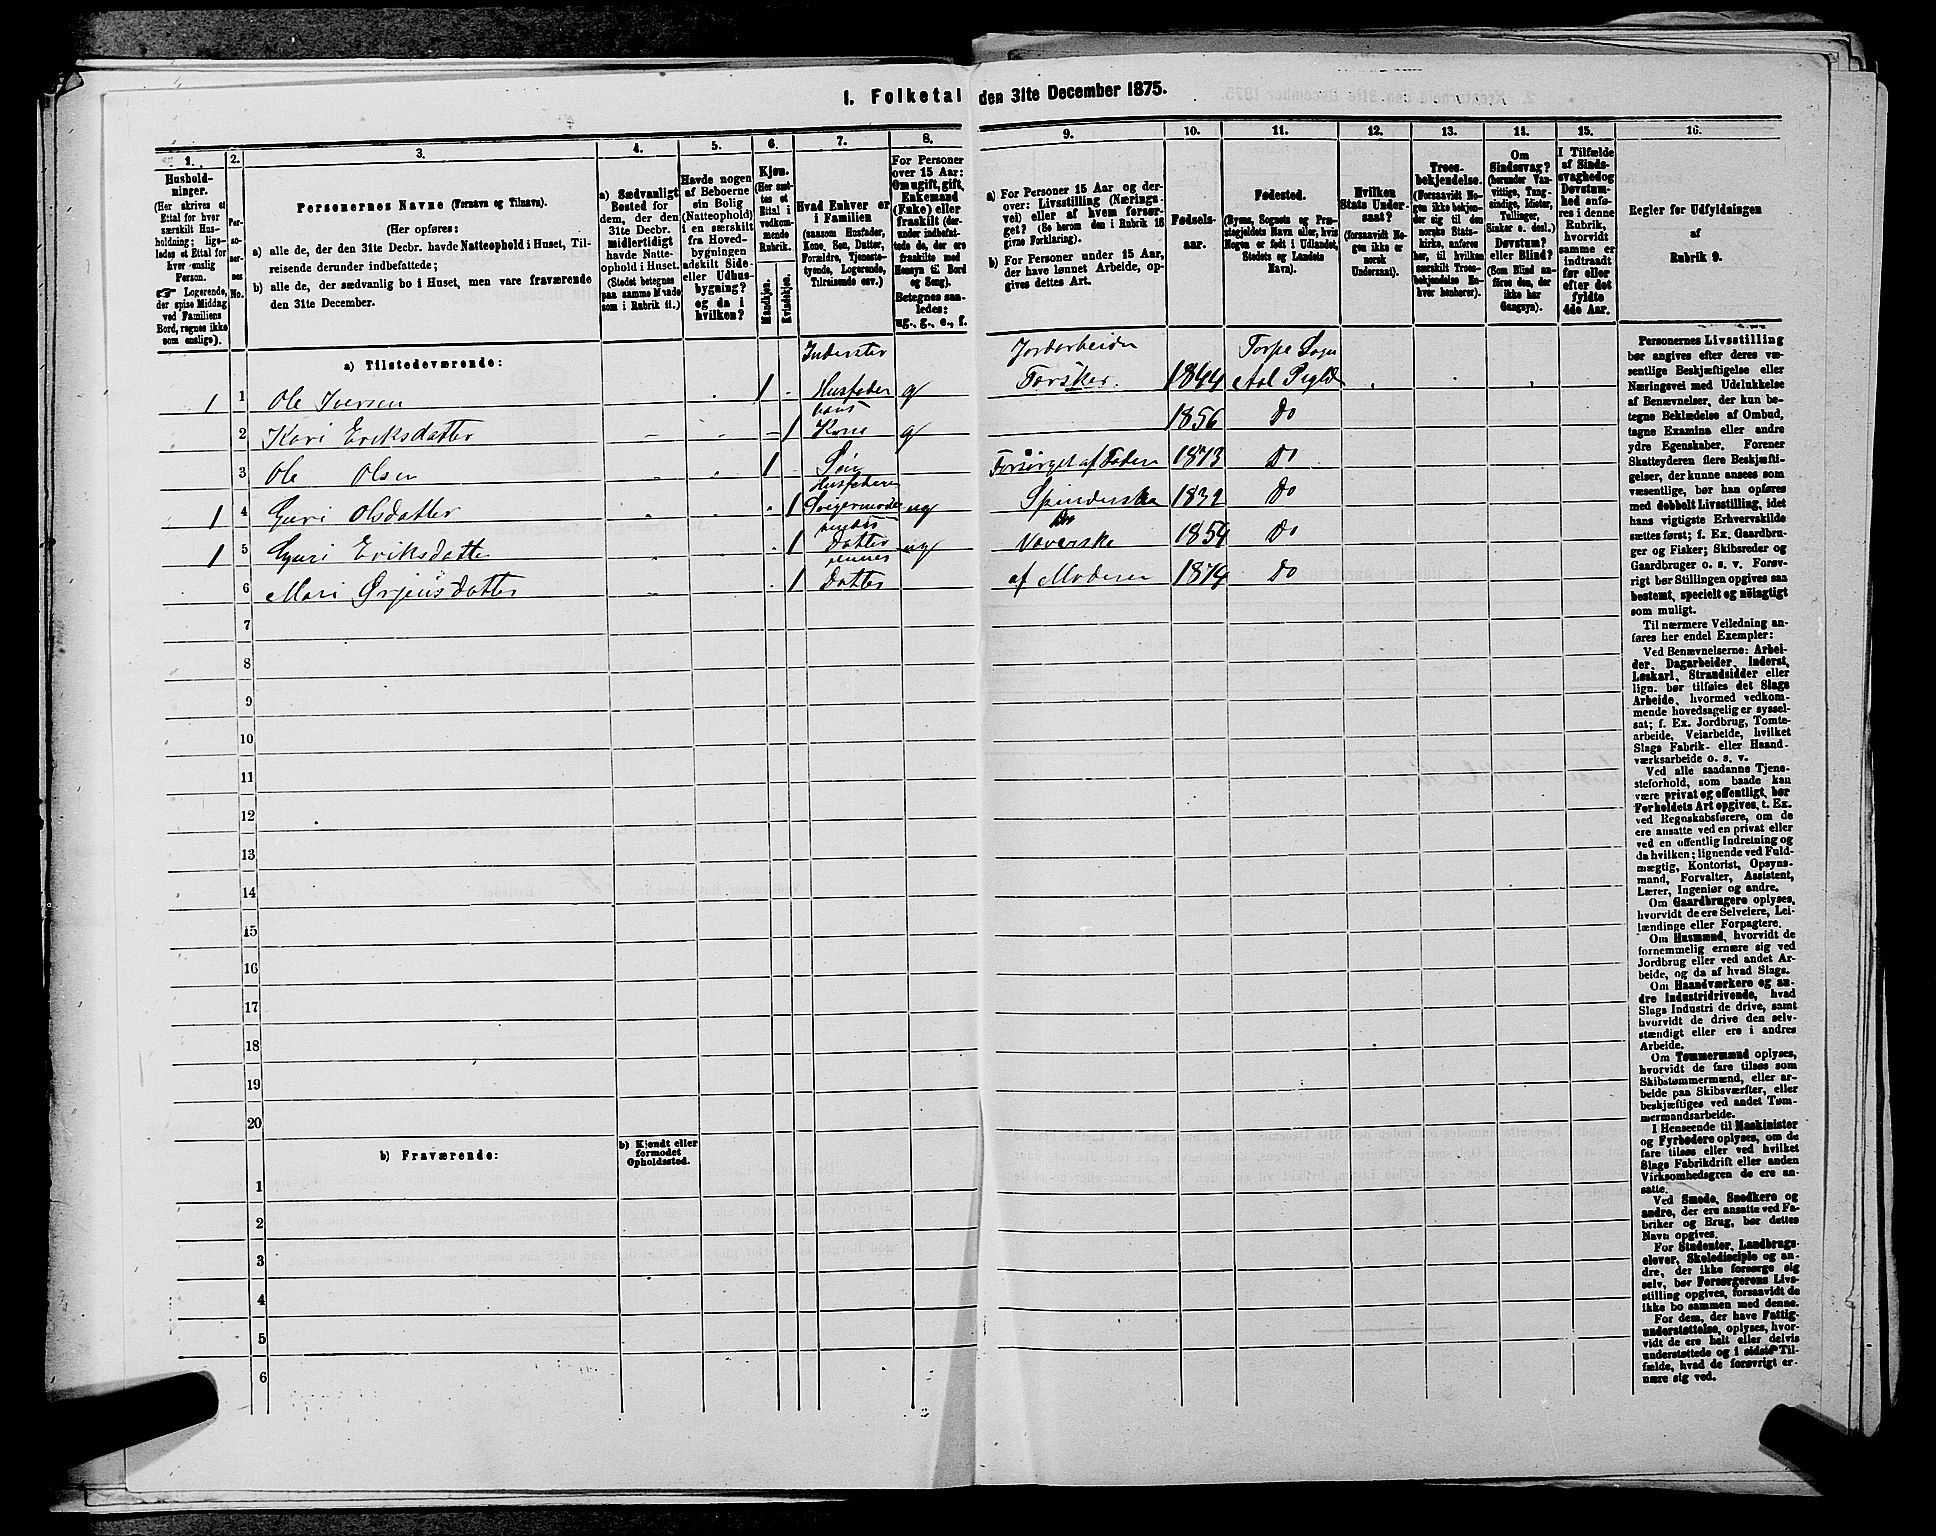 I. Folketal den 31te December 1875.
1.
Hushold-
ninger.
(Her skrives et
Ettal for hver
særskilt Hus-
holdning; lige-
ledes et Ettal for
hver enslig
Person.
☞ Logerende,
der spise Middag
ved Familiens
Bord, regnes ikke
som enslige).
2.
Per-
so-
ner-
nes
No.
3.
Personernes Navne (Fornavn og Tilnavn).
(Her opføres:
a) alle de, der den 31te Decbr. havde Natteophold i Huset, Til-
reisende derunder indbefattede;
b) alle de, der sædvanlig bo i Huset, men vare fraværende
den 31te December.
4.
a) Sædvanligt
Bosted for
dem, der den
31te Decbr.
midlertidigt
havde Natte-
ophold i Huset.
(Stedet betegnes
paa samme Maade
som i Rubrik 11.)
5.
Havde nogen
af Beboerne
sin Bolig
(Natteophold)
i en særskilt
fra Hoved-
bygningen
adskilt Side-
eller Udhus-
bygning?
og da i
hvilken?
6.
Kjøn.
(Her sæt-
tes et
Ettal i
vedkom-
mende
Rubrik.
Mandkjøn.
Kvindekjøn.
7.
Hvad Enhver er
i Familien
(saasom Husfader,
Kone, Søn, Datter,
Forældre, Tjeneste-
tyende, Logerende,
Tilreisende osv.)
8.
For Personer
over 15 Aar:
Om ugift, gift,
Enkemand
(Enke) eller
fraskilt (der-
under indbefat-
tede de, der ere
fraskilte med
Hensyn til Bord
og Seng).
Betegnes saa-
ledes:
ug., g., e., f.
9.
a) For Personer 15 Aar og der-
over: Livsstilling (Nærings-
vei) eller af hvem forsør-
get? (Se herom den i Rubrik 16
givne Forklaring).
b) For Personer under 15 Aar,
der have lønnet Arbeide, op-
gives dettes Art.
10.
Fødsels-
aar.
11.
Fødested.
(Byens, Sognets og Præ-
stegjeldets Navn eller, hvis
Nogen er født i Udlandet,
Stedets og Landets
Navn).
12.
Hvilken
Stats Under-
saat?
(forsaavidt No-
gen ikke er
norsk
Undersaat).
13.
Troes-
bekjendelse.
(Forsaavidt No-
gen ikke bekjen-
der sig til den
norske Stats-
kirke, anføres
her, til hvilken
særskilt Troes-
bekjendelse En-
hver henhører).
14.
Om
Sindssvag?
(herunder Van-
vittige, Tung-
sindige, Idioter,
Tullinger,
Sinker o. desl.)
Døvstum?
eller Blind?
(Som Blind an-
føres den, der
ikke har
Gangsyn).
15.
I Tilfælde
af Sinds-
svaghed og
Døvstum-
hed anfø-
res i denne
Rubrik,
hvorvidt
samme er
indtraadt
før eller
efter det
fyldte
4de Aar.
16.
Regler for Udfyldningen
af
Rubrik 9.
a) Tilstedeværende:
Inderster Jordarbeider Torpe Sogn
1 1 Ole Iversen 1 Husfader g Forsker. 1844 Aol Pgld
2 Kari Eriksdatter 1 hans Kone g 1856 Do
3 Ole Olsen 1 Søn Forsørget af Faderen 1873 Do
1 4 Guri Olsdatter 1 Husfaderens Svigermoder ug Spinderske 1832 Do
1 5 Guri Eriksdatter 1 hendes Datter ug Do Væverske 1854 Do
6 Mari Ørjensdatter 1 ennes Datter af Moderen 1874 Do
7
8
9
10
11
12
13
14
15
16
17
18
19
20
b) Fraværende:
b) Kjendt eller
formodet
Opholdssted.
1
2
3
4
5
6
Personernes Livsstilling
bør angives efter deres væ-
sentlige Beskjæftigelse eller
Næringsvei med Udelukkelse
af Benævnelser, der kun be-
tegne Beklædelse af Ombud,
tagne Examina eller andre
ydre Egenskaber. Forener
Skatteyderen flere Beskjæfti-
gelser, der kunne ansees som
væsentlige, bør han opføres
med dobbelt Livsstilling, idet
hans vigtigste Erhvervskilde
sættes først; f. Ex. Gaardbru-
ger og Fisker; Skibsreder og
Gaardbruger o. s. v. Forøv-
rigt bør Stillingen opgives saa
bestemt, specielt og nøiagtigt
som muligt.
Til nærmere Veiledning an-
føres her endel Exempler:
Ved Benævnelserne: Arbei-
der, Dagarbeider, Inderst,
Løskarl, Strandsidder eller
lign. bør tilføies det Slags
Arbeide, hvormed vedkom-
mende hovedsagelig er syssel-
sat; f. Ex. Jordbrug, Tomte-
arbeide, Veiarbeide, hvilket
Slags Fabrik- eller Haand-
værksarbeide o. s. v.
Ved alle saadanne Tjene-
steforhold, som baade kan
være privat og offentligt, bør
Forholdets Art opgives, t. Ex.
ved Regnskabsførere, om de
ere ansatte ved en privat eller
ved en offentlig Indretning og
da hvilken; lignende ved Fuld-
mægtig, Kontorist, Opsyns-
mand, Forvalter, Assistent,
Lærer, Ingeniør og andre.
Om Gaardbrugere oplyses,
hvorvidt de ere Selveiere, Lei-
lændinge eller Forpagtere.
Om Husmænd, hvorvidt de
fornemmelig ernære sig ved
Jordbrug eller ved andet Ar-
beide, og da af hvad Slags.
Om Haandværkere og an-
dre Industridrivende, hvad
Slags Industri de drive, samt
hvorvidt de drive den selv-
stændigt eller ere i andres
Arbeide.
Om Tømmermænd oplyses,
hvorvidt de fare tilsøs som
Skibstømmermænd, eller ar-
beide paa Skibsværfter, eller
beskjæftiges ved andet Tøm-
mermandsarbeide.
I Henseende til Maskinister
og Fyrbødere oplyses, om de
fare tilsøs eller ved hvilket
Slags Fabrikdrift eller anden
Virksomhedsgren de ere an-
satte.
Ved Smede, Snedkere og
andre, der ere ansatte ved Fa-
briker og Brug, bør dettes
Navn opgives.
For Studenter, Landbrugs-
elever, Skoledisciple og an-
dre, der ikke forsørge sig
selv, bør Forsørgerens Livs-
stilling opgives, forsaavidt de
ikke bo sammen med denne.
For dem, der have Fattig-
understøttelse, oplyses, hvor-
vidt de ere helt eller delvis
understøttede og i sidste Til-
fælde, hvad de forøvrigt er-
nære sig ved.